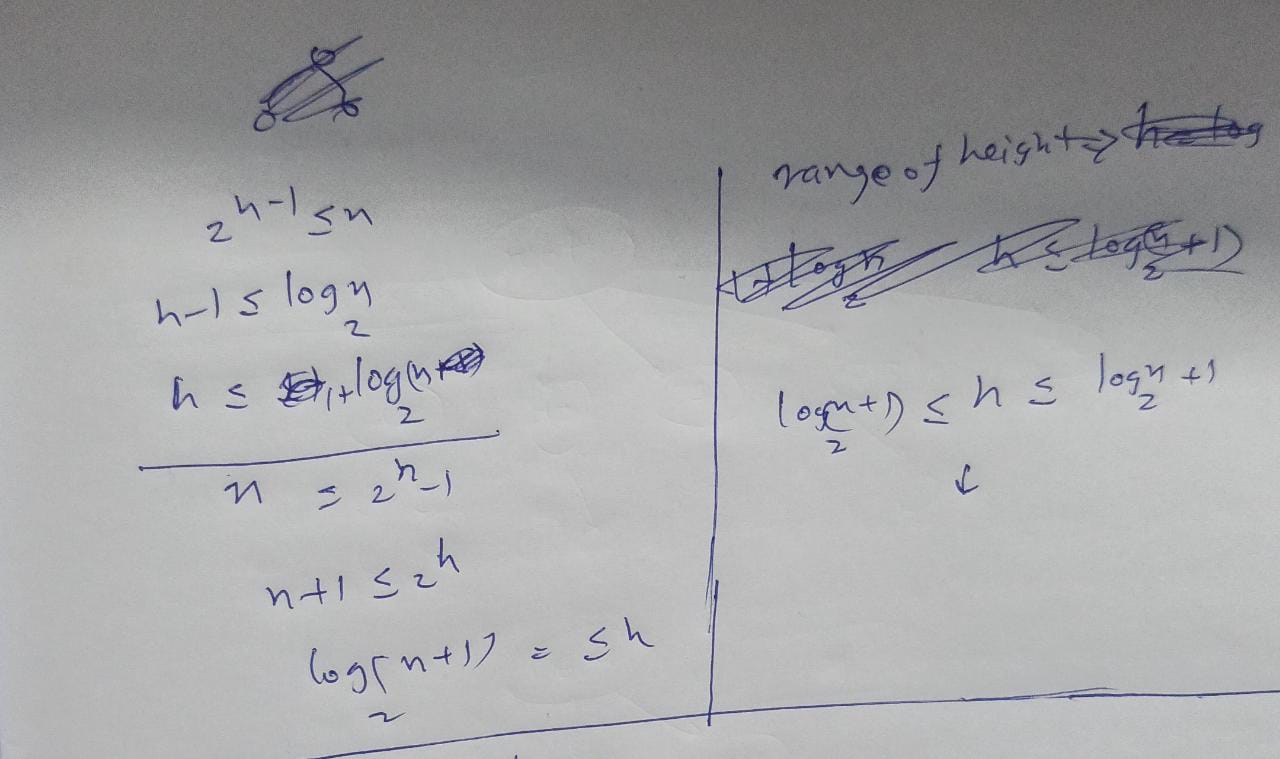 2^h-1 ≤ n
h-1 ≤ log₂n
h ≤ 1+log₂(n
n ≤ 2^h-1
n+1 ≤ 2^h
log₂(n+1) = ≤ h
range of height ⇒
log₂(n+1) ≤ h ≤ log₂n +1
↓